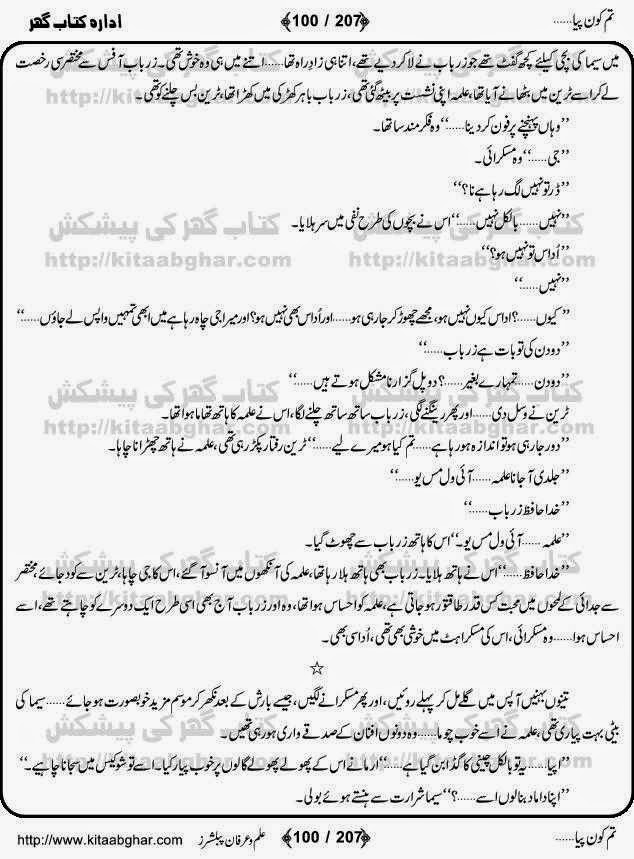 تم کون پیا......
100 / 207
ادارہ کتاب گھر
میں سیما کی بچی کیلئے کچھ گفٹ تھے جو زرباب نے لا کر دیے تھے، اتنا ہی زادِ راہ تھا......اتنے میں ہی وہ خوش تھی۔ زرباب آفس سے مختصر سی رخصت
لے کر اسے ٹرین میں بٹھانے آیا تھا، علمہ اپنی نشست پر بیٹھ گئی تھی، زرباب باہر کھڑکی میں کھڑا تھا، ٹرین بس چلنے کو تھی۔
’’وہاں پہنچنے پر فون کر دینا......‘‘ وہ فکر مند سا تھا۔
’’جی......‘‘ وہ مسکرائی۔
’’ڈر تو نہیں لگ رہا ہے نا؟‘‘
’’نہیں......بالکل نہیں......‘‘ اس نے بچوں کی طرح نفی میں سر ہلایا۔
’’اُداس تو نہیں ہو؟‘‘
’’نہیں......‘‘
’’کیوں......؟ اداس کیوں نہیں ہو، مجھے چھوڑ کر جا رہی ہو......اور اُداس بھی نہیں ہو؟ اور میرا جی چاہ رہا ہے میں ابھی تمہیں واپس لے جاؤں......‘‘
’’دو دن کی تو بات ہے زرباب......‘‘
’’دو دن......تمہارے بغیر......؟ دو پل گزارنا مشکل ہوتے ہیں......‘‘
ٹرین نے وسل دی......اور پھر رینگنے لگی، زرباب ساتھ ساتھ چلنے لگا، اس نے علمہ کا ہاتھ تھاما ہوا تھا۔
’’دور جا رہی ہو تو اندازہ ہو رہا ہے......تم کیا ہو میرے لیے......‘‘ ٹرین رفتار پکڑ رہی تھی، علمہ نے ہاتھ چھڑانا چاہا۔
’’جلدی آ جانا علمہ......آئی ول مس یو......‘‘
’’خدا حافظ زرباب......‘‘
’’علمہ......آئی ول مس یو۔‘‘ اس کا ہاتھ زرباب سے چھوٹ گیا۔
’’خدا حافظ......‘‘ اس نے ہاتھ ہلایا۔ زرباب بھی ہاتھ ہلا رہا تھا، علمہ کی آنکھوں میں آنسو آ گئے، اس کا جی چاہا، ٹرین سے کود جائے، مختصر
سے جدائی کے لمحوں میں محبت کس قدر طاقتور ہو جاتی ہے، علمہ کو احساس ہوا تھا، وہ اور زرباب آج بھی اسی طرح ایک دوسرے کو چاہتے تھے، اسے
احساس ہوا......وہ مسکرائی، اس کی مسکراہٹ میں خوشی بھی تھی، اُداسی بھی۔
☆
تینوں بہنیں آپس میں گلے مل کر پہلے روئیں، اور پھر مسکرانے لگیں، جیسے بارش کے بعد نکھر کر موسم مزید خوبصورت ہو جائے......سیما کی
بیٹی بہت پیاری تھی، علمہ نے اسے خوب چوما......وہ دونوں افنان کے صدقے واری ہو رہی تھیں۔
’’اپیا......یہ تو بالکل چینی کا گڈا بن گیا ہے......‘‘ ارما نے اس کے پھولے پھولے گالوں پر خوب پیار کیا۔ اسے تو شوکیس میں سجانا چاہیے۔‘‘
’’اپنا داماد بنا لوں اسے......؟‘‘ سیما شرارت سے ہنستے ہوئے بولی۔
کتاب گھر کی پیشکش
http://kitaabghar.com
تم کون پیا......
100 / 207
علم و عرفان پبلشرز
http://www.kitaabghar.com